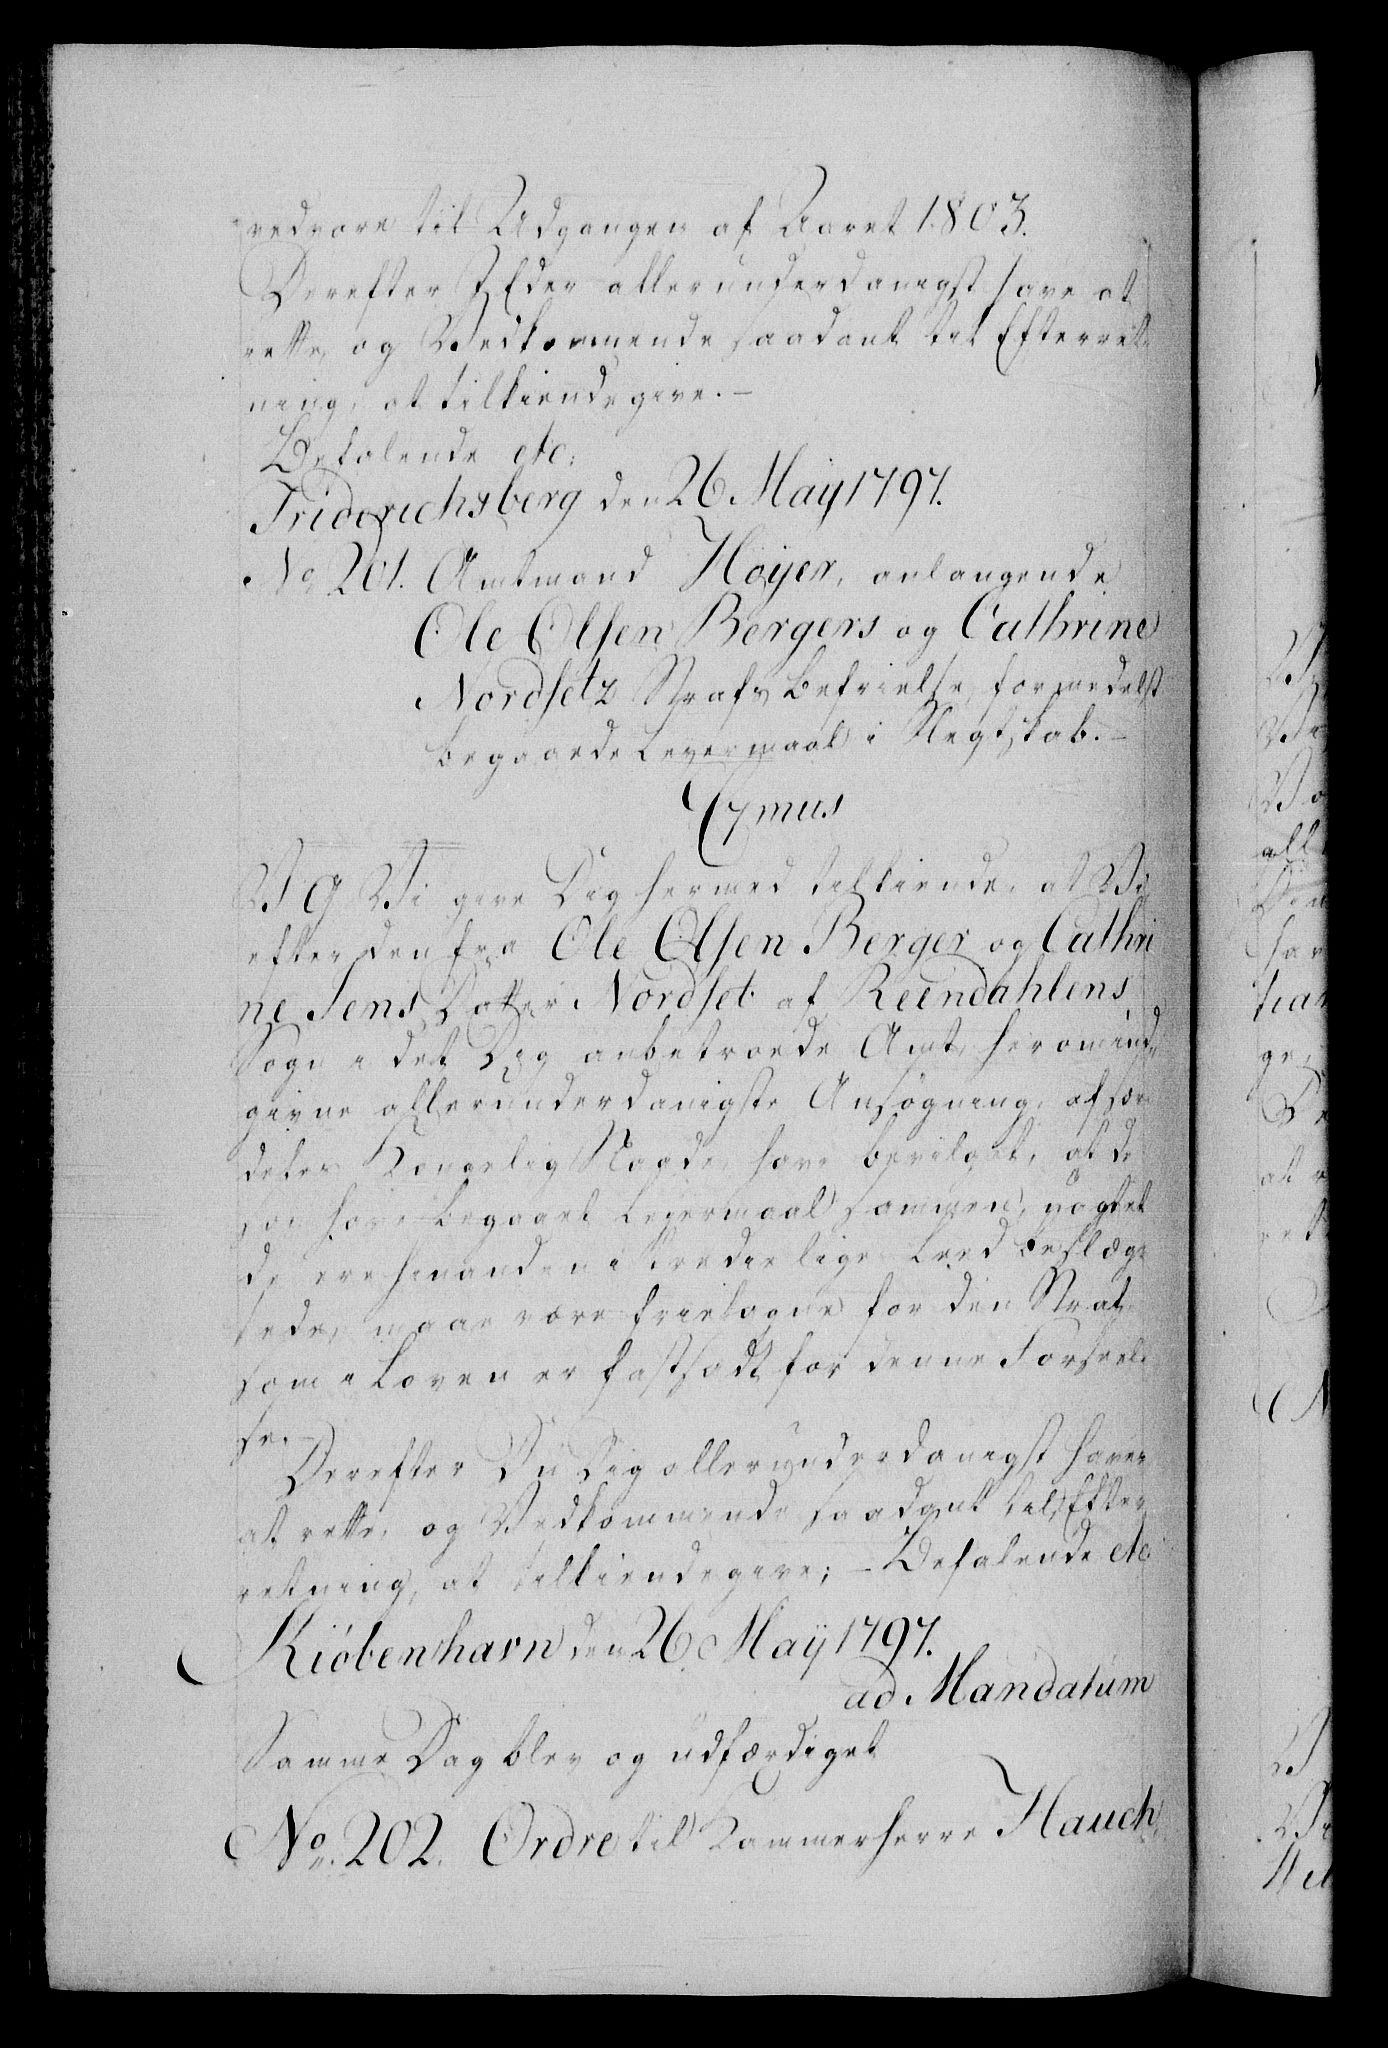 vedvare til Udgangen af Aaret 1803.
Derefter I Eder allerunderdanigst have at
rette, og Vedkommende saadant til Efterret-
ning, at tilkiendegive.-
Befalende etc:
Friderichsberg den 26 Maÿ 1797.
No 201. Amtmand Höÿer, anlangende
Ole Olsen Bergers og Cathrine
Nordsetz Strafs Befrielse, formedelst
begaaede Leyermaal i Slegtskab.-
C7mus
V G Vi give Dig hermed tilkiende, at Vi
efter den fra Ole Olsen Berger og Cathri
ne Jens Datter Nordset af Reendahlens
Sogn i det Dig anbetroede Amt, herom ind-
givne allerunderdanigste Ansøgning, af sær-
deles Kongelig Naade, have bevilget, at de
som have begaaet Leyermaal sammen, uagtet
de ere hinanden i tredie lige Leed beslæg-
tede, maae være frietagne for den Straf
som i Loven er fastsadt for denne Forseel-
se.-
Derefter Du Dig allerunderdanigst haver
at rette, og Vedkommende saadant til Efter
retning, at tilkiendegive; - Befalende etc
Kiöbenhavn den 26 Maÿ 1797.
ad Mandatum
Samme Dag blev og udfærdiget
No. 202. Ordre til Kammerherre Hauch,